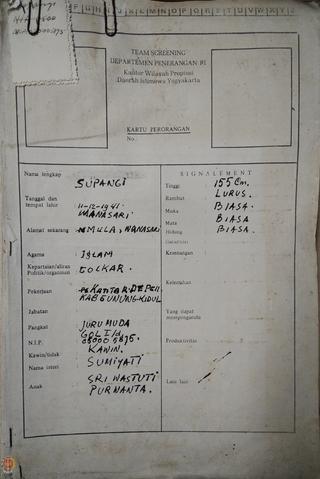 TEAM SCREENING
DEPARTEMEN PENERANGAN RI
Kantor Wilayah Propinsi
Daerah Istimewa Yogyakarta
KARTU PERORANGAN
No.
Nama lengkap SUPANGI
Tanggal dan tempat lahir 11-12-1941. WANASARI
Alamat sekarang MULA, WANASARI
Agama ISLAM
Kepartaian/aliran Politik/organisasi GOLKAR.
Pekerjaan KANTOR DEPEN KAB GUNUNG KIDUL
Jabatan
Pangkat JURU MUDA GOL I/a.
N.I.P.
Kawin/tidak KAWIN.
Nama isteri SUMIYATI
Anak SRI WASTUTI
PURNANTA.
SIGNALEMENT
Tinggi 155 Cm.
Rambut LURUS.
Muka BIASA.
Mata BIASA
Hidung BIASA.
Kelemahan
Yang dapat mempengaruhi
Produktivitas
Lain-lain